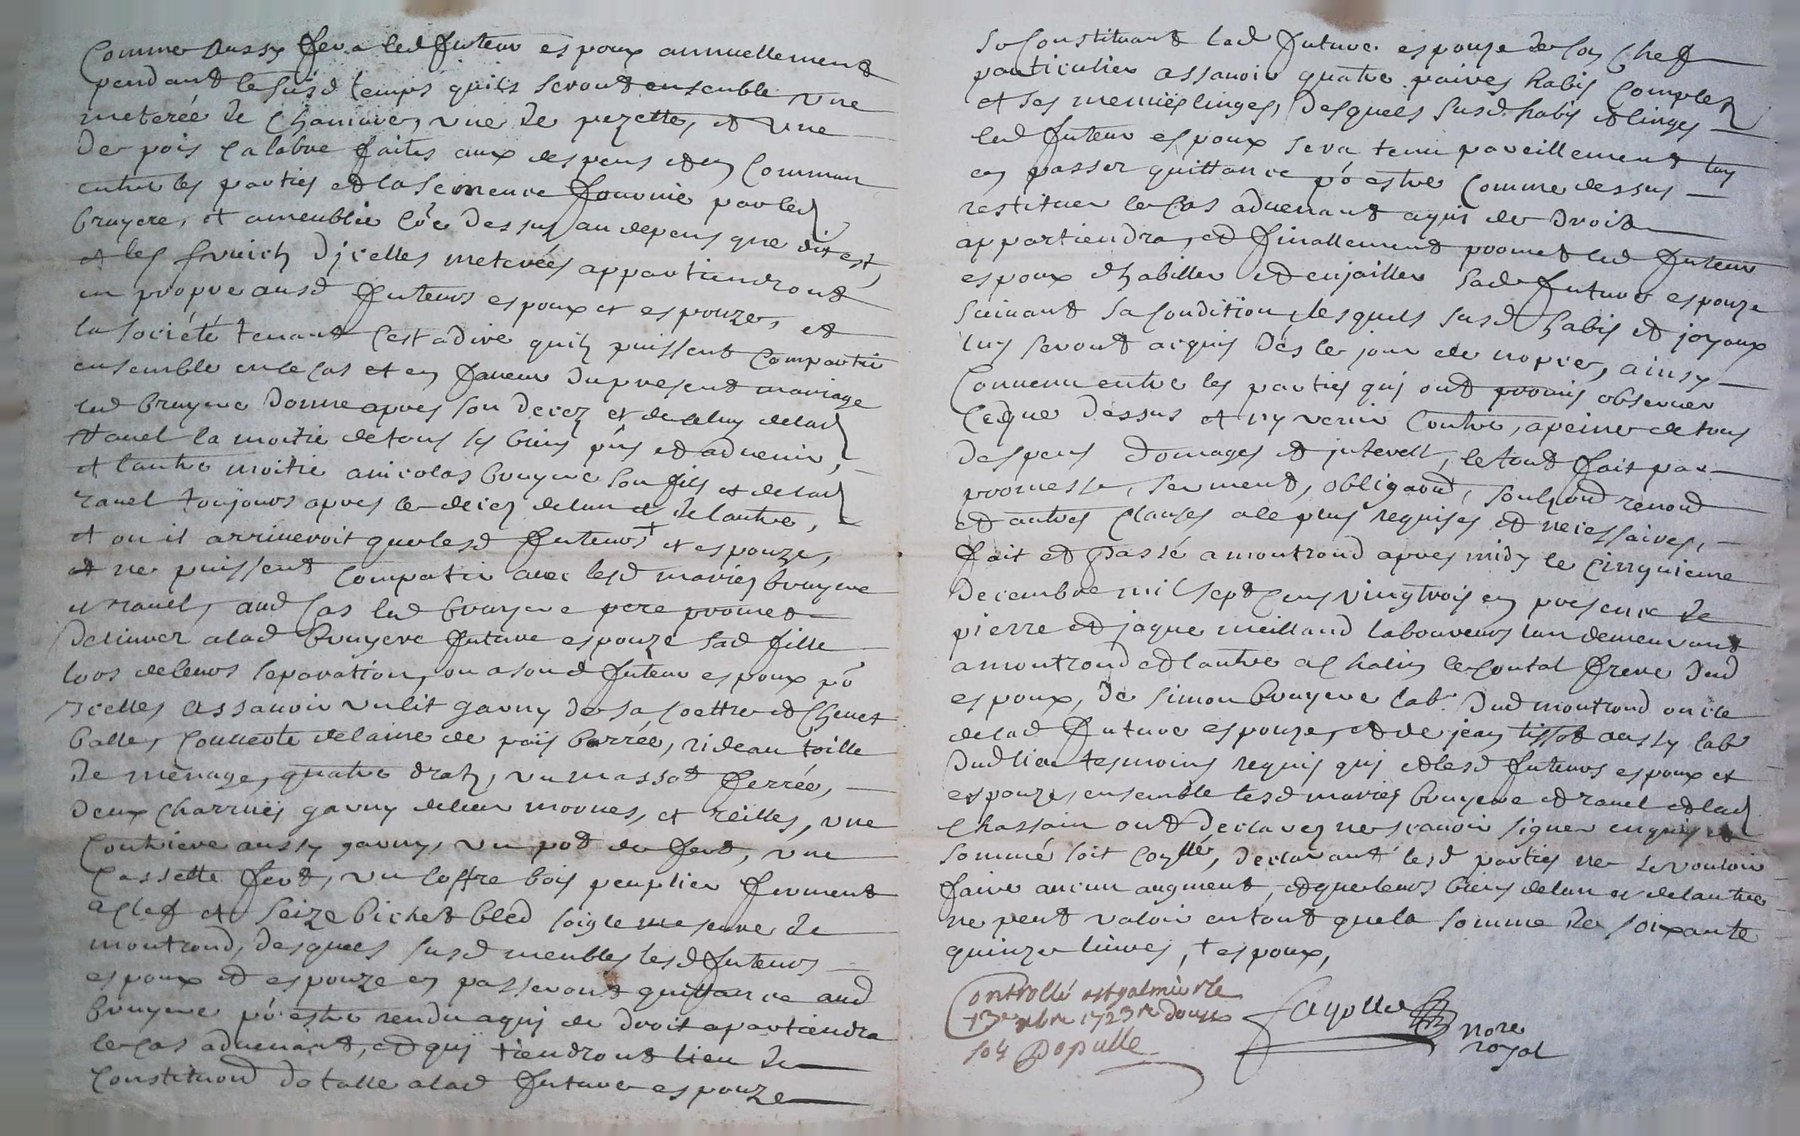 Comme aussy fera led futeur espoux annuellement
pendant le susd temps quils seront ensemble une
meterée de chanure, une de pezette, et une
de pois calabre faites aux despens et en commun
entre les parties et la semence fournie par led
bruyere, et ameublie coe dessus au depens que dit est,
et les fruich dicelles meterées appartiendront
en propre ausd futeurs espoux et espouze, et
la société tenant cest adire quilz puissent compartir
ensemble en ce cas et en faveur du present mariage
led bruyere donne apres son decez et de celuy de lad
ravel la moitie de tous ses biens pns et advenir,
et lautre moitie a nicolas bruyere son fils et de lad
ravel toujours apres le decez de lun et de lautre,
et ou il arriveroit que lesd futeurs + et espouze,
et ne puissent compatir avec lesd mariez bruyere
et ravel, aud cas led bruyere pere promet
delivrer a lad bruyere future espouze sad fille
lors de leurs separation, ou a sond futeur espoux po
icelles assavoir un lit garny de sa coettre et chevet
balle, couverte de laine de païs barrée, rideau toille
de menage, quatre dratz, un massot ferrée,
deux charrues garny de leur mornes, et reilles, une
coutriere aussy garny, un pot de fert, une
cassette fert, un coffre bois peuplier ferment
a clef et seize bichet bled soigle mesure de
montrond, desquels susd meubles lesd futeurs
espoux et espouze en passeront quittance aud
bruyere po estre rendu a qui de droit apartiendra
le cas advenant, et qui tiendront lieu de
constituond dotalle a lad future espouze
se constituant lad future espouze de son chef
particulier assavoir quatre paires habis complez
et ses menues linges, desquels susd habis et linges
led futeur espoux sera tenu pareillement luy
en passer quittance po estre comme dessus
restituer le cas advenant a qui de droit
appartiendra, et finallement promet led futeur
espoux dhabiller et enjailler sad future espouze
suivant sa condition, lesquels susd habis et joyaux
luy seront acquis dès le jour de nopces, ainsy
convenu entre les parties qui ont promis observer
ce que dessus et ny venir contre, a peine de tous
despens domages et interest, le tout fait par
promesse, serment, obligaond, soubmond renond
et autres clauses a ce plus requises et necessaires,
fait et passé a montrond apres midy le cinquieme
decembre mil sept cens vingt trois en presence de
pierre et jaque meilland laboureurs lun demeurant
a montrond et lautre a chalin le contal frere dud
espoux, de simon bruyere labr dud montrond oncle
de lad future espouze, et de jean tissot aussy labr
dud lieu tesmoins requis qui et lesd futeurs espoux et
espouze, ensemble lesd mariez bruyere et ravel et lad
chassain ont declarez ne scavoir signer enquis et
sommé soit conllé, declarant lesd parties ne se vouloir
faire aucun augment, et que leurs biens de lun et de lautre
ne peut valoir en tout que la somme de soixante
quinze livres, + espoux,
Controllé a st galmier le
13e xbre 1723 r douze
sols Populle
Fayolle
nore
royal